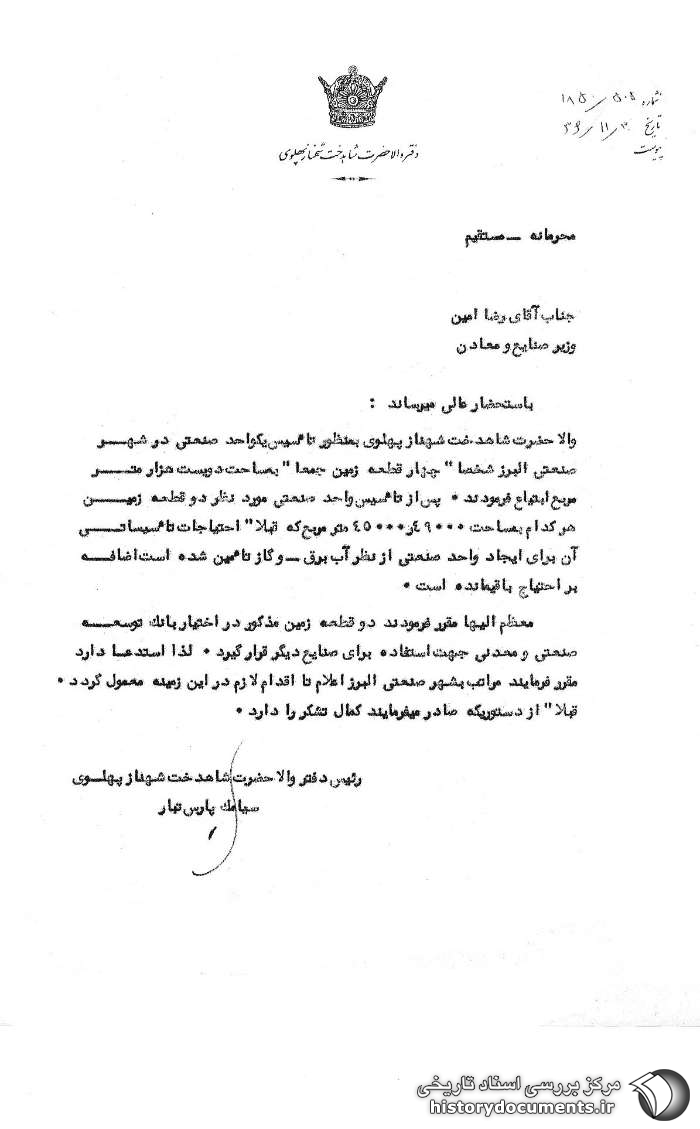 شماره ۵۰۵/۱۸۵۰
تاریخ ۳۶/۱۱/
پیوست
دفتر والاحضرت شاهدخت شهناز پهلوی
محرمانه ـ مستقیم
جناب آقای رضا امین
وزیر صنایع و معادن
باستحضار عالی میرساند :
والا حضرت شاهدخت شهناز پهلوی بمنظور تأسیس یکواحد صنعتی در شهر
صنعتی البرز شخصا" چهار قطعه زمین جمعا" بمساحت دویست هزار متر
مربع ابتیاع فرمودند • پس از تأسیس واحد صنعتی مورد نظر دو قطعه زمین
هر کدام بمساحت ٤٩٠٠٠ و ٤٥٠٠٠ متر مربع که قبلا" احتیاجات تأسیساتی
آن برای ایجاد واحد صنعتی از نظر آب برق ـ و گاز تأمین شده است اضافه
بر احتیاج باقیمانده است •
معظم الیها مقرر فرمودند دو قطعه زمین مذکور در اختیار بانک توسعه
صنعتی و معدنی جهت استفاده برای صنایع دیگر قرار گیرد • لذا استدعا دارد
مقرر فرمایند مراتب بشهر صنعتی البرز اعلام تا اقدام لازم در این زمینه معمول گردد •
قبلا" از دستوریکه صادر میفرمایند کمال تشکر را دارد •
رئیس دفتر والا حضرت شاهدخت شهناز پهلوی
سیامک پارس تبار
مرکز بررسی اسناد تاریخی
historydocuments.ir